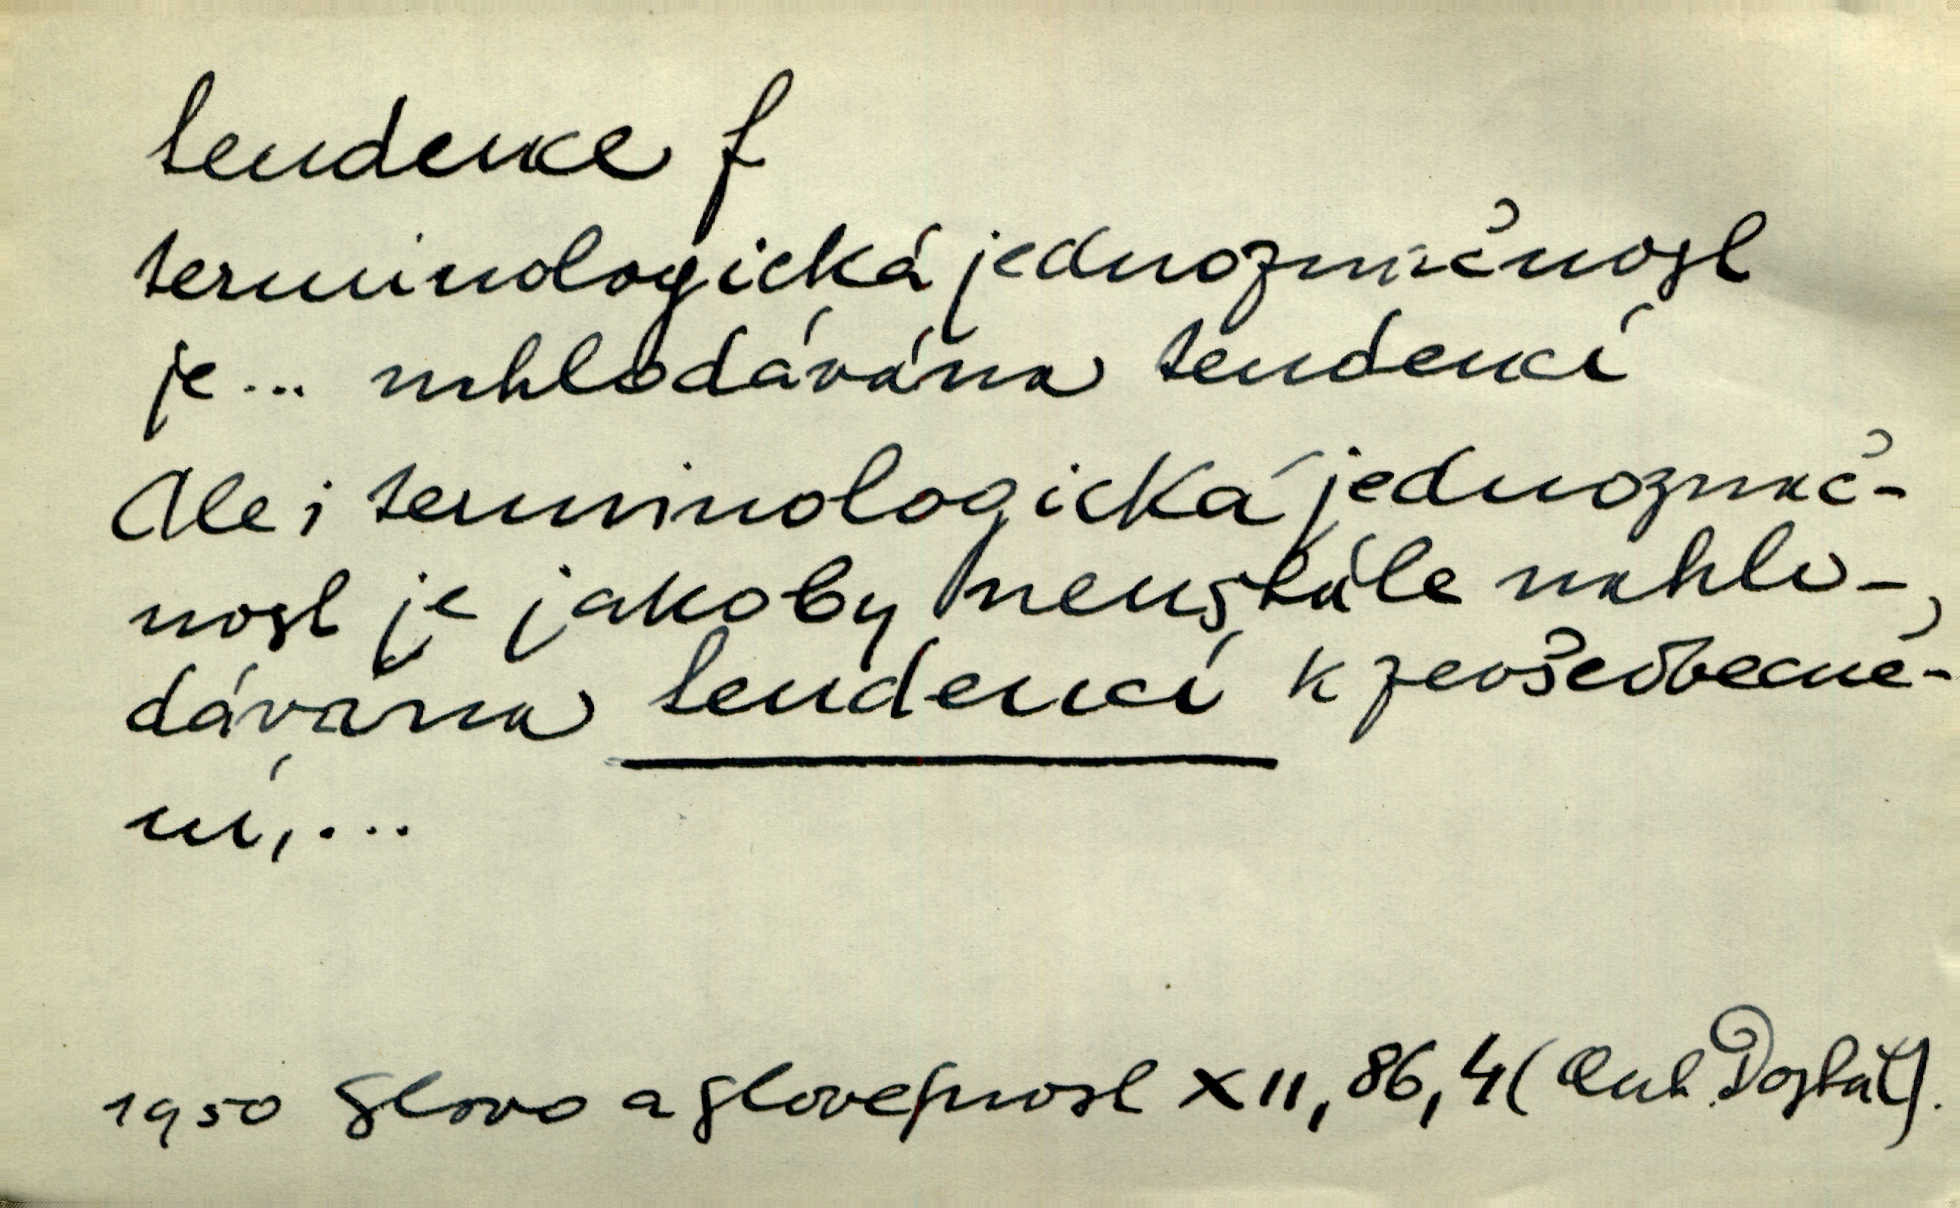 tendence f
terminologická jednoznačnost
je... nahlodávána tendencí
Ale i terminologická jednoznač-
nost je jakoby neustále nahlo-
dávána tendencí k zevšeobecně-
ní,...
1950 Slovo a slovesnost XII, 86, 4 (Ant. Dostál).